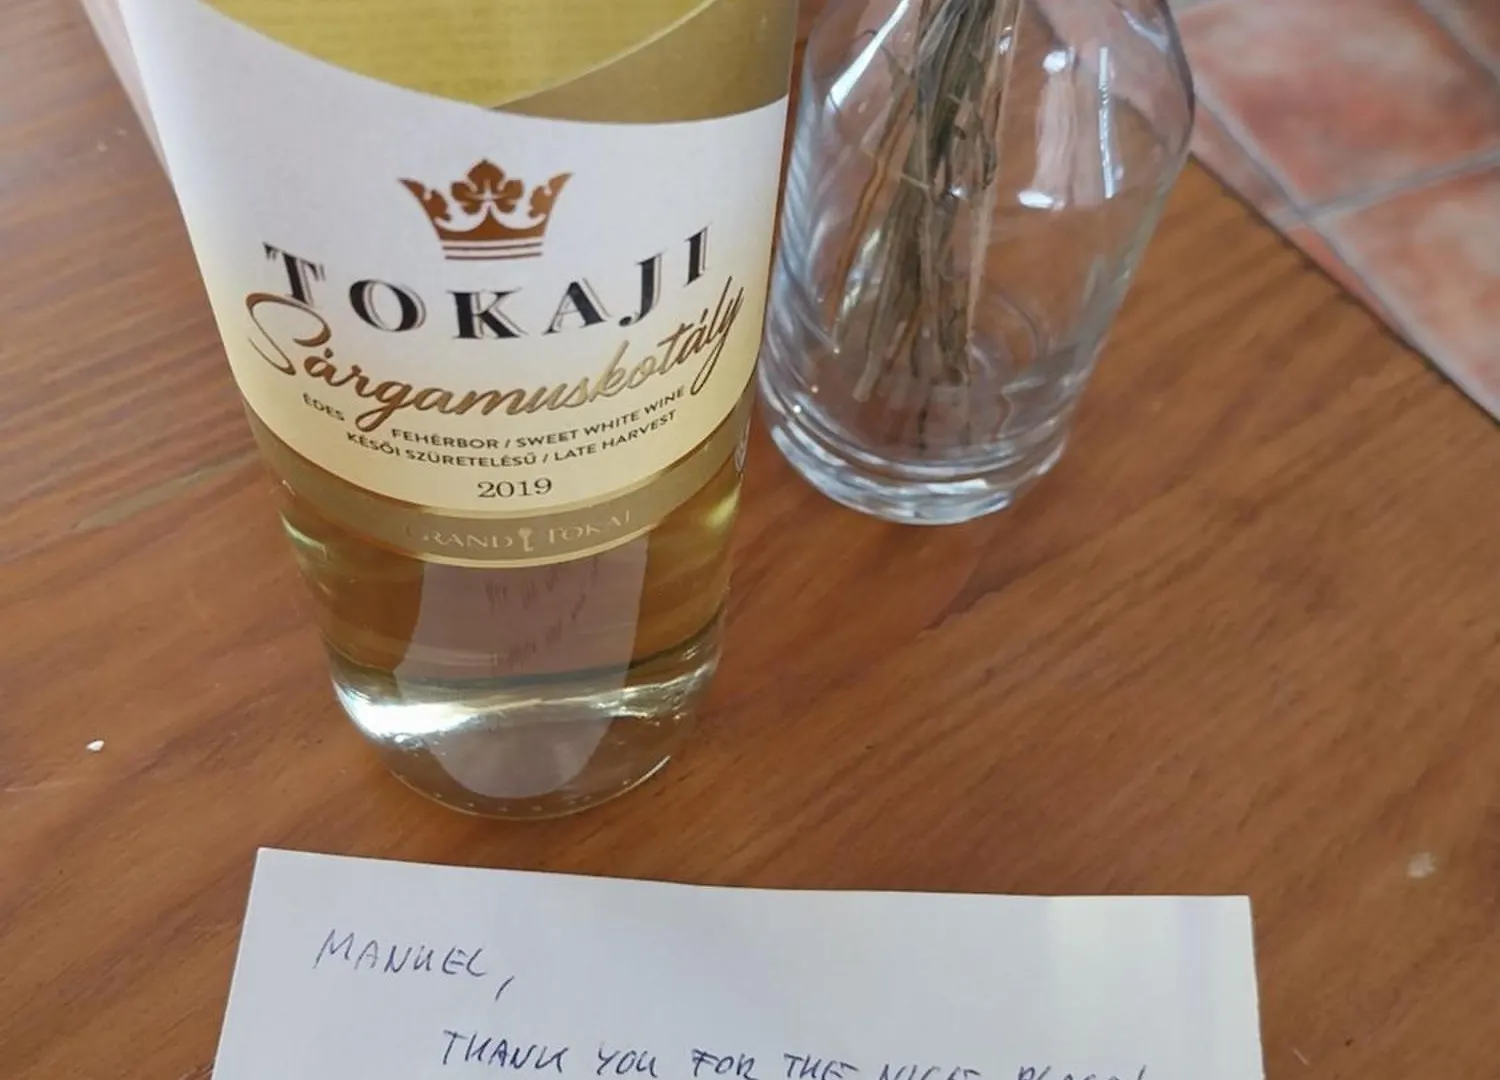 TOKAJI
Sárgamuskotály
ÉDES FEHÉRBOR / SWEET WHITE WINE
KÉSŐI SZÜRETELÉSŰ / LATE HARVEST
2019
GRAND TOKAJ
MANUEL,
THANK YOU FOR THE NICE PLACE!